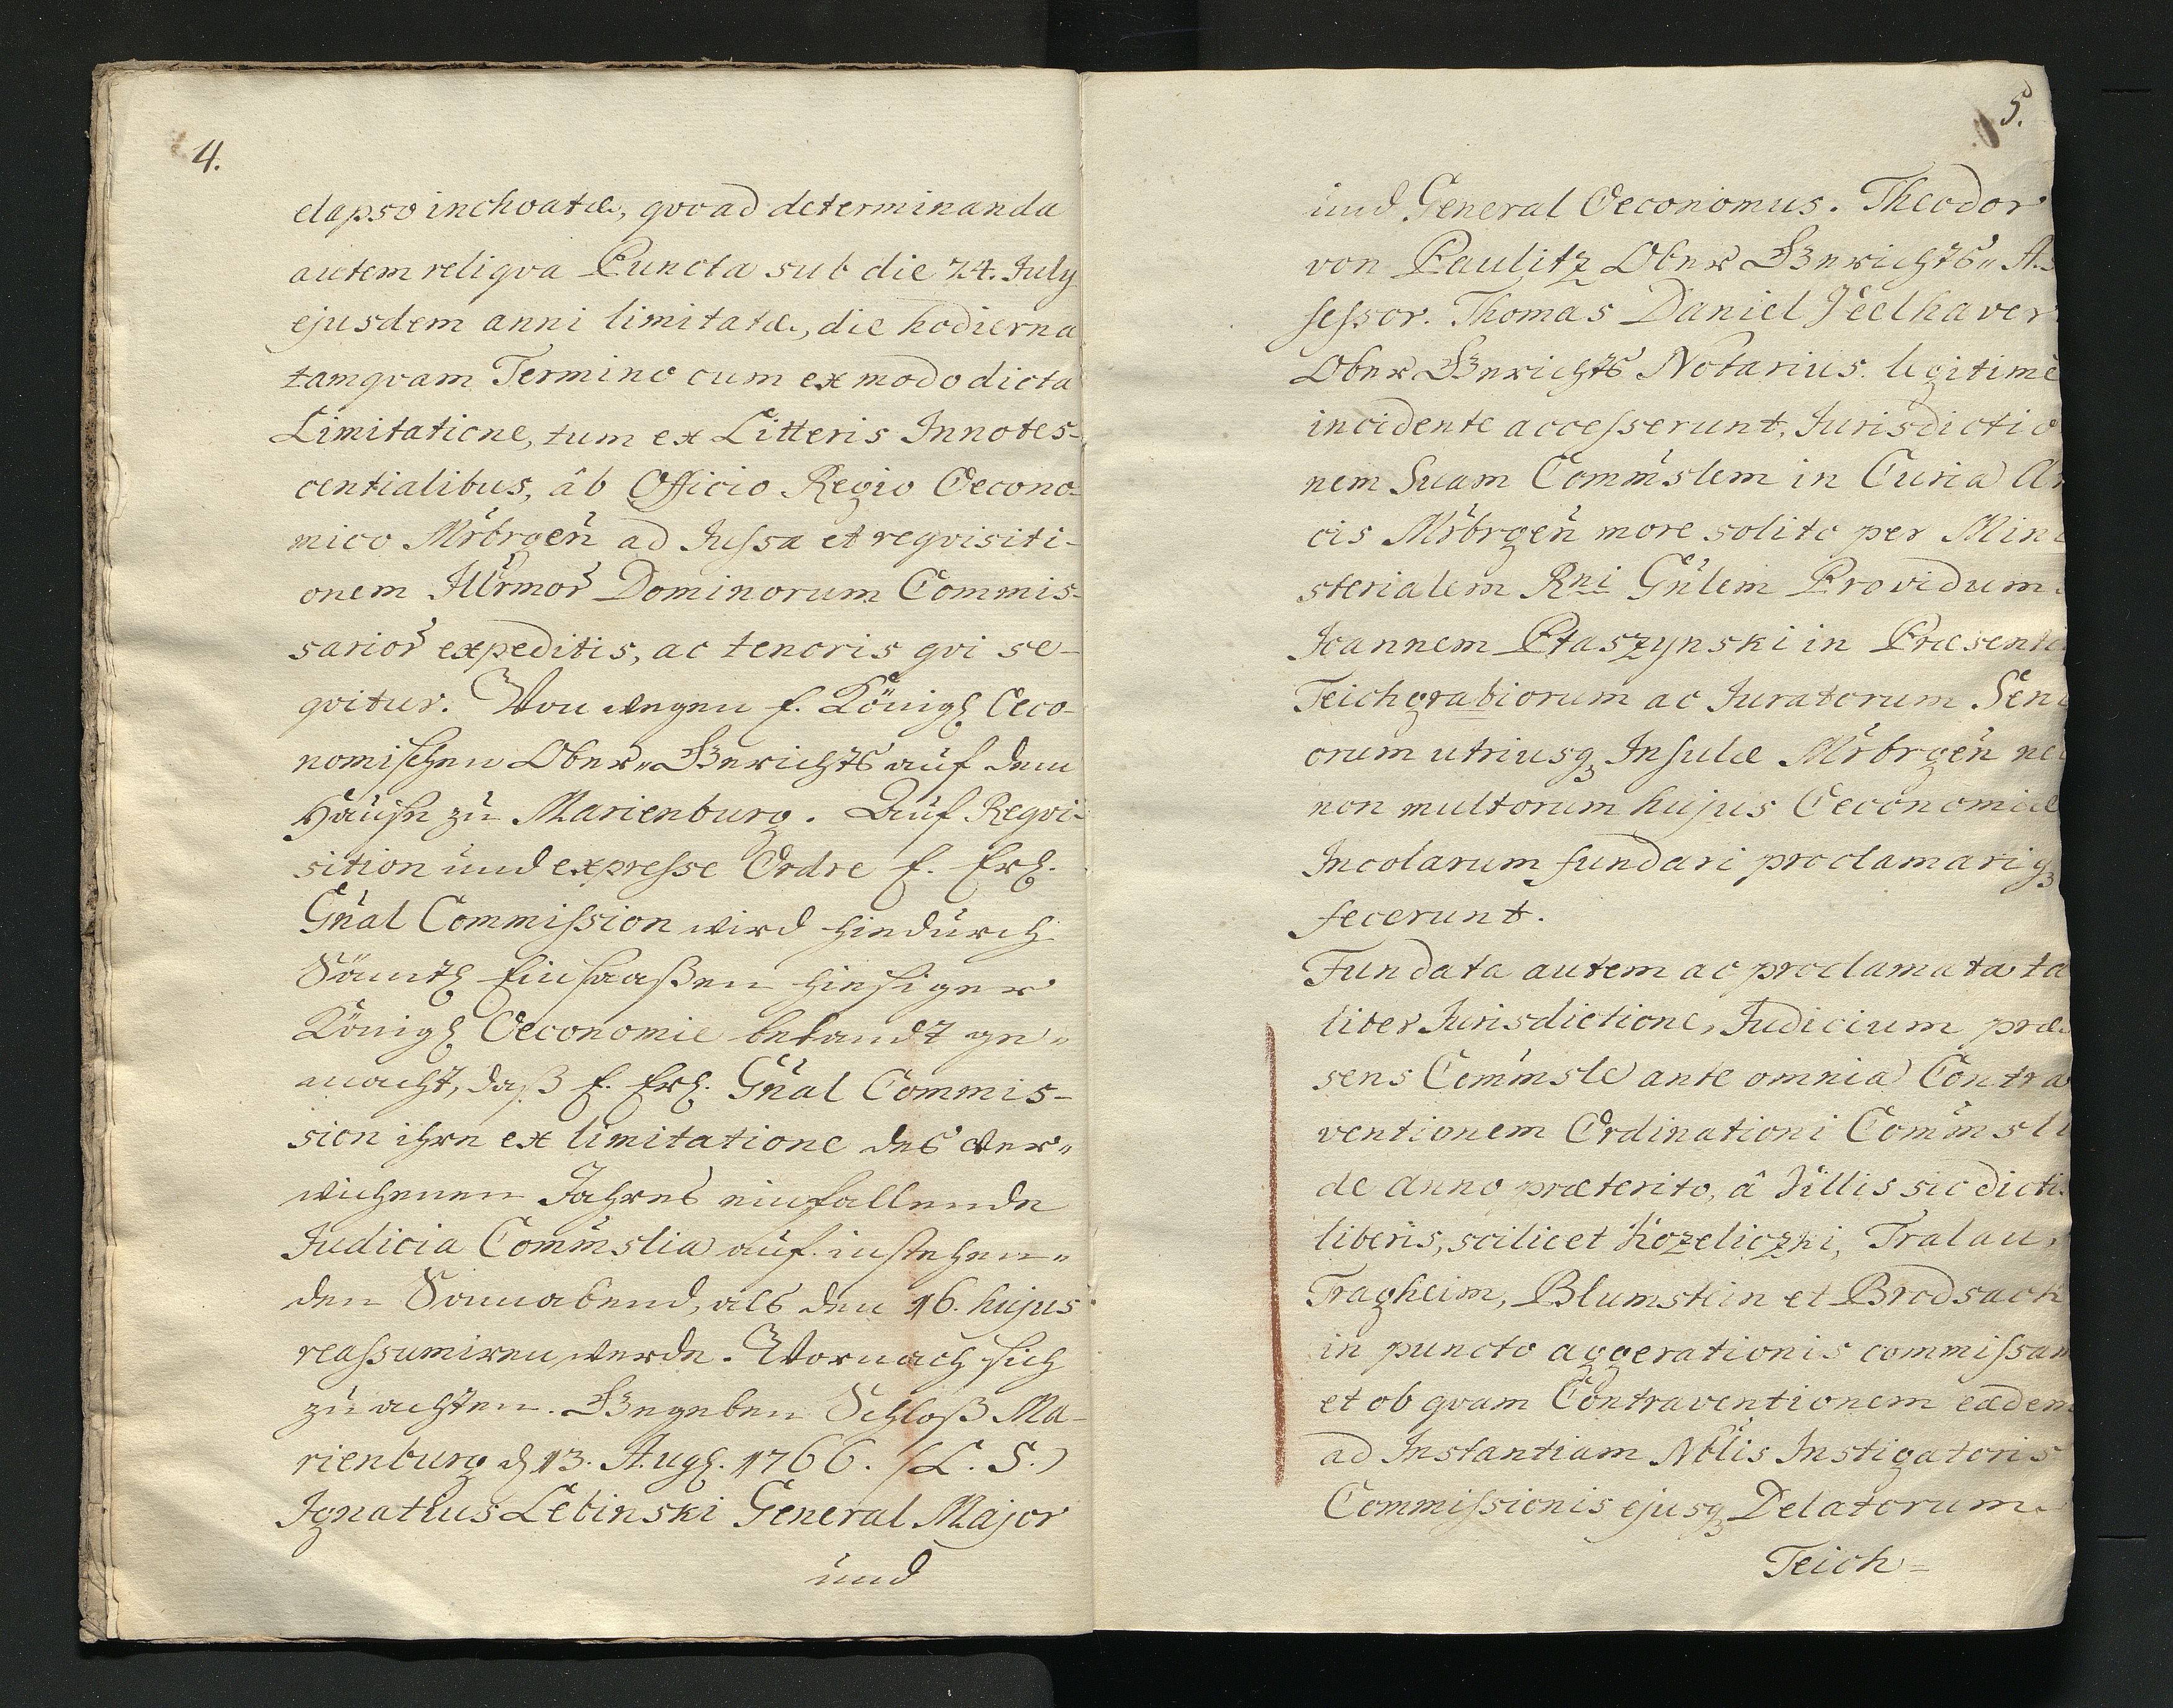 4.
elapso inchoatæ, qvoad determinanda
autem reliqva Puncta sub die 24. July
ejusdem anni limitatæ, die hodierna
tamqvam Termino cum ex modo dicta
Limitatione, tum ex Litteris Innotes-
centialibus, âb Officio Regio Oecono-
mico Mrbrgen̄ ad Jussa et reqvisiti-
onem Illr̄mor̄ Dominorum Commis-
sarior̄ expeditis, ac tenoris qvi se-
qvitur. Von wegen E. Königl Oeco-
nomischen Ober-Gerichts auf dem
Hause zu Marienburg. Auf Reqvi-
sition und expresse Ordre E. Erl.
Gn̄al Commission wird hiedurch
Sämtl Einsaaßen hiesiger
Königl Oeconomie bekandt ge-
macht, daß E. Erl. Gn̄al Commis-
sion ihre ex limitatione des ver-
wichenen Jahres einfallende
Judicia Comm̄slia auf instehen-
den Sonnabend, als den 16. hujus
reassumiren werde. Wornach sich
zu achten. Gegeben Schloß Ma-
rienburg d 13. Augl. 1766. (L. S.)
Ignatius Lebinski General Major
und
5.
und General Oeconomus. Theodor
von Paulitz Ober Gerichts-As
sessor. Thomas Daniel Seelhaver
Ober Gerichts Notarius. legitimè
incidente accesserunt, Jurisdictio
nem Suam Comm̄slem in Curia Ar
cis Mrbrgen̄ more solito per Mini
sterialem Rni Gn̄lem Providum
Joannem Ptaszynski in Præsentia
Teichgrabiorum ac Juratorum Seni
orum utriusq Insulæ Mrbrgen̄ nec
non multorum hujus Oeconomiæ
Incolarum fundari proclamariq
fecerunt.
Fundata autem ac proclamata ta
liter Jurisdictione, Judicium præ
sens Comm̄sle ante omnia Contra
ventionem Ordinationi Comm̄sli
de anno præterito, â Villis sic dictis
liberis, scilicet Kozeliczki, Tralau,
Tragheim, Blumstein et Brodsack
in puncto aggerationis commissam
et ob qvam Contraventionem eædem
ad Instantiam Nb̄lis Instigatoris
Commissionis ejusq Delatorum
Teich-